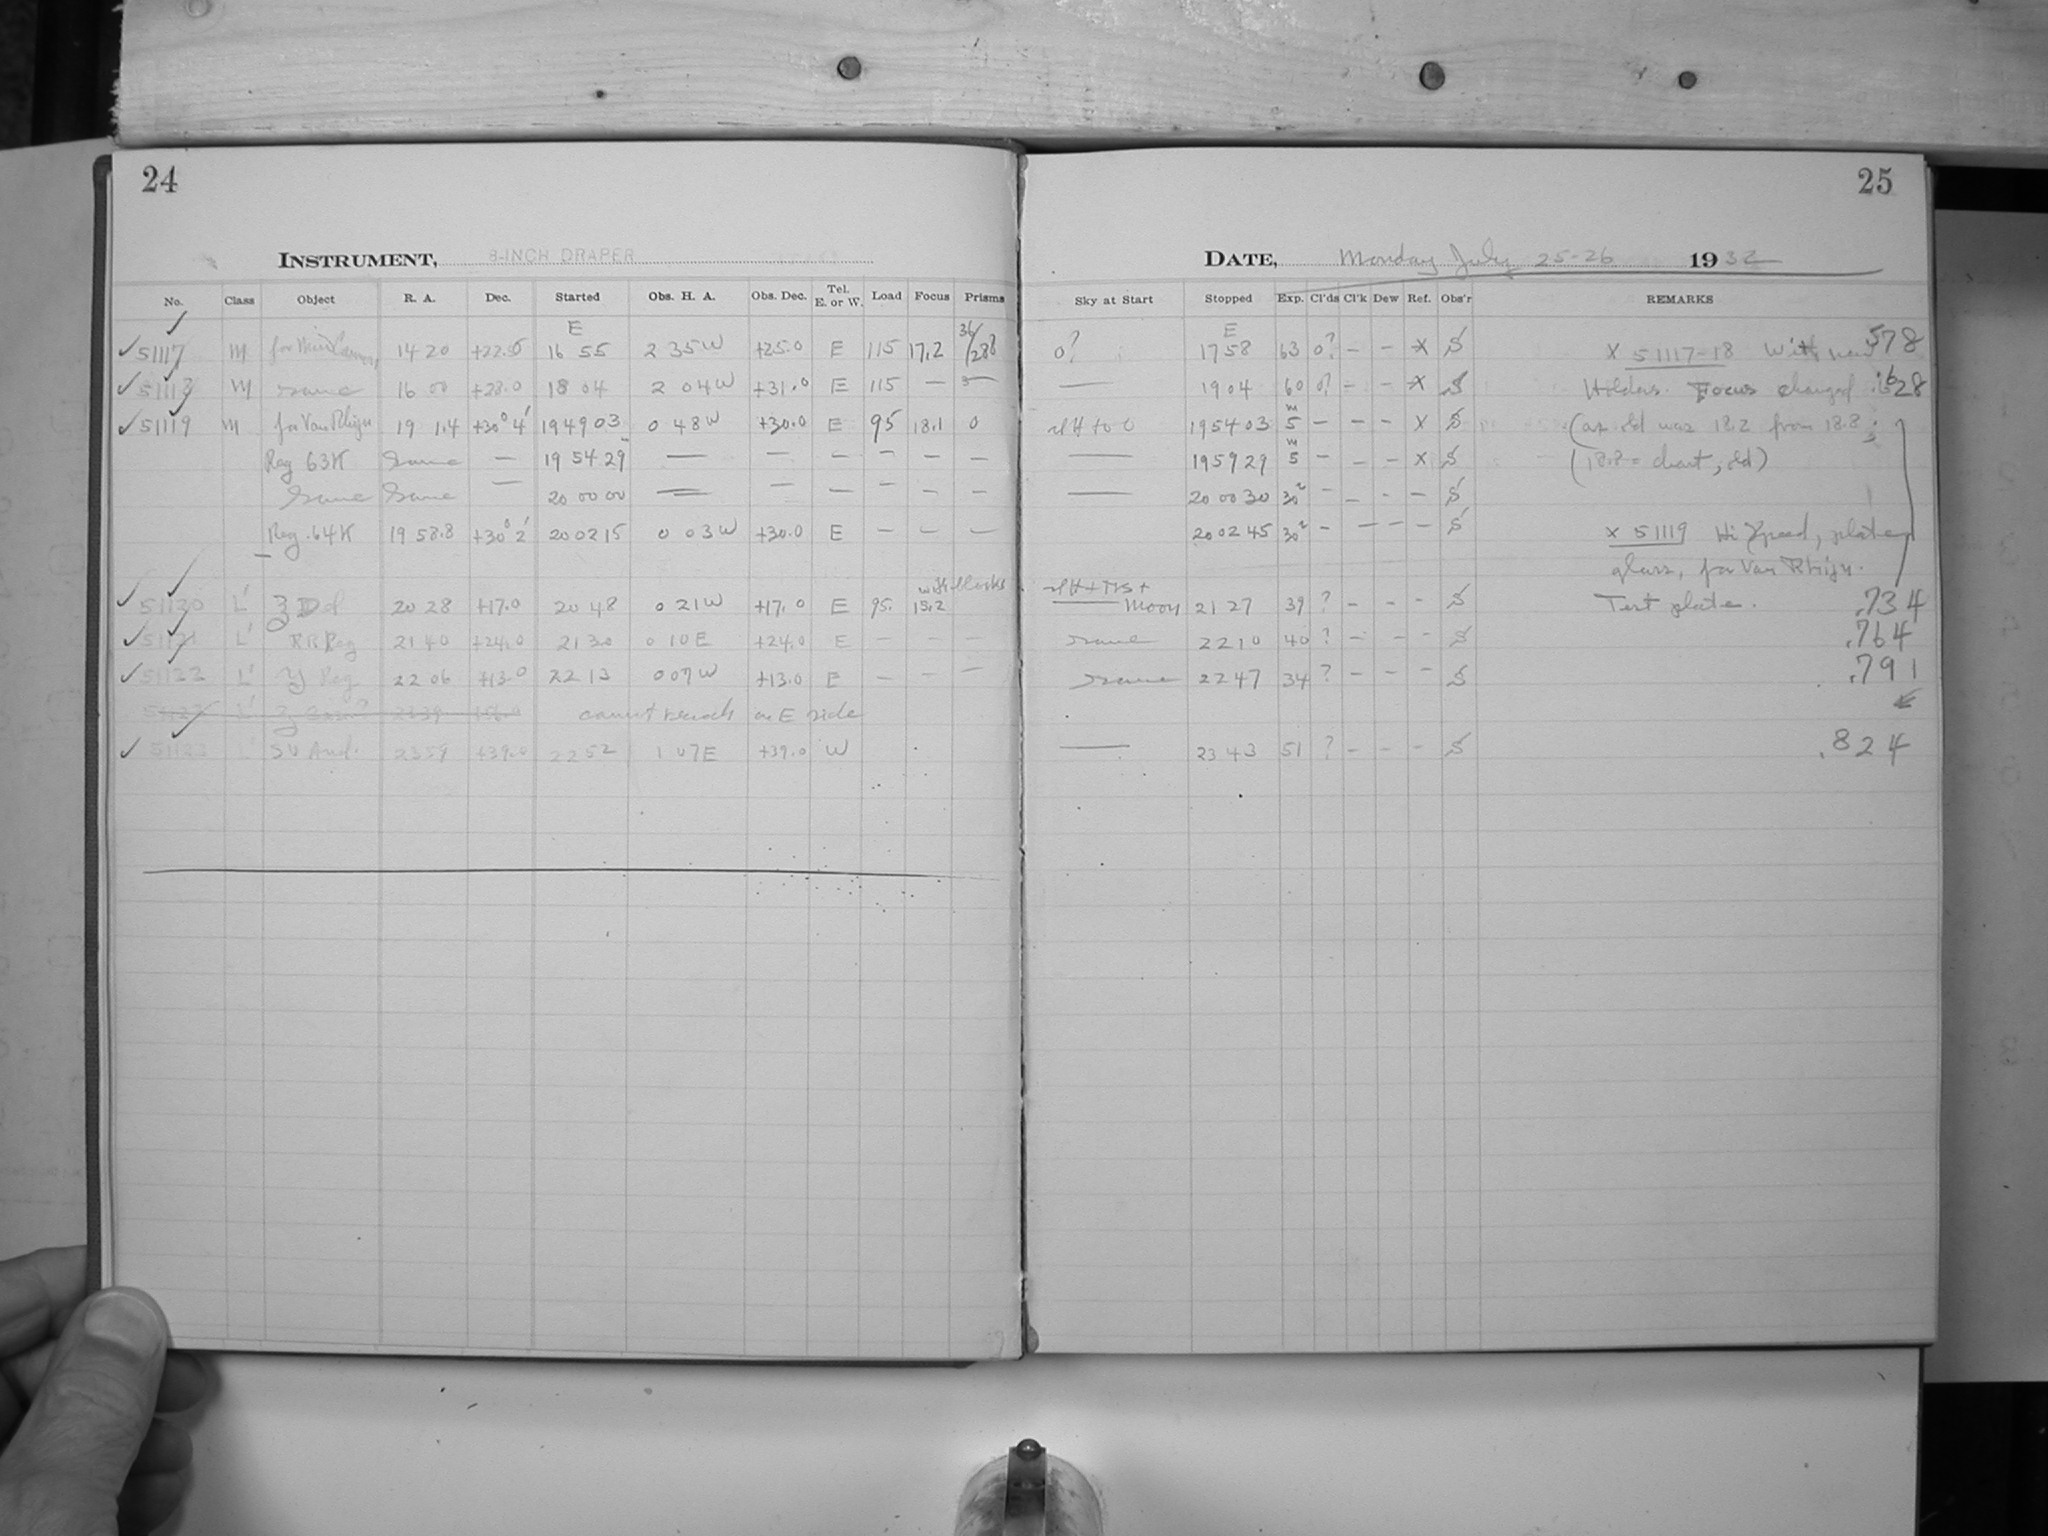 24
25
INSTRUMENT, 8-INCH DRAPER
DATE, Monday July 25-26 1932
No. Class Object R. A. Dec. Started Obs. H. A. Obs. Dec. Tel. E. or W. Load Focus Prisms
Sky at Start Stopped Exp. Cl'ds Cl'k Dew Ref. Obs'r REMARKS
E E
51117 M for Miss Cannon 14 20 16 55 2 35 W +25.0 E 115 17.2 0? 17 58 63 0? — — X S X 51117-18 With new 578
M same 16 00 +28.0 18 04 2 04 W +31.0 E 115 — — 19 04 60 0? — — X S Holders. Focus changed 628
51119 M for Van Rhijn 19 1.4 +30° 4' 19 49 03 0 48 W +30.0 E 95 18.1 0 19 54 03 5m — — — X S (as old was 18.2 from 18.8
Reg 63K same — 19 54 29 — — — — — — — 19 59 29 5m — — — X S (18.8 = chart, old)
same same — 20 00 00 — — — — — — — 20 00 30 30s — — — — S
Reg. 64K 19 58.8 +30° 2' 20 02 15 0 03 W +30.0 E — — — 20 02 45 30s — — — — S X 51119 Hi Speed, plate
glass, for Van Rhijn.
51120 L' 20 28 +17.0 20 48 0 21 W +17.0 E 95. 15.2 Moon 21 27 39 ? — — — S Test plate. .734
51121 L' RR Peg 21 40 +24.0 21 30 0 10 E +24.0 E — — — same 22 10 40 ? — — — S .764
51122 L' Peg 22 06 +13.0 22 13 0 07 W +13.0 E — — — same 22 47 34 ? — — — S .791
51123 L' cannot reach on E side
51123 L' SV And. 23 59 +39.0 22 52 1 07 E +39.0 W — 23 43 51 ? — — — S .824